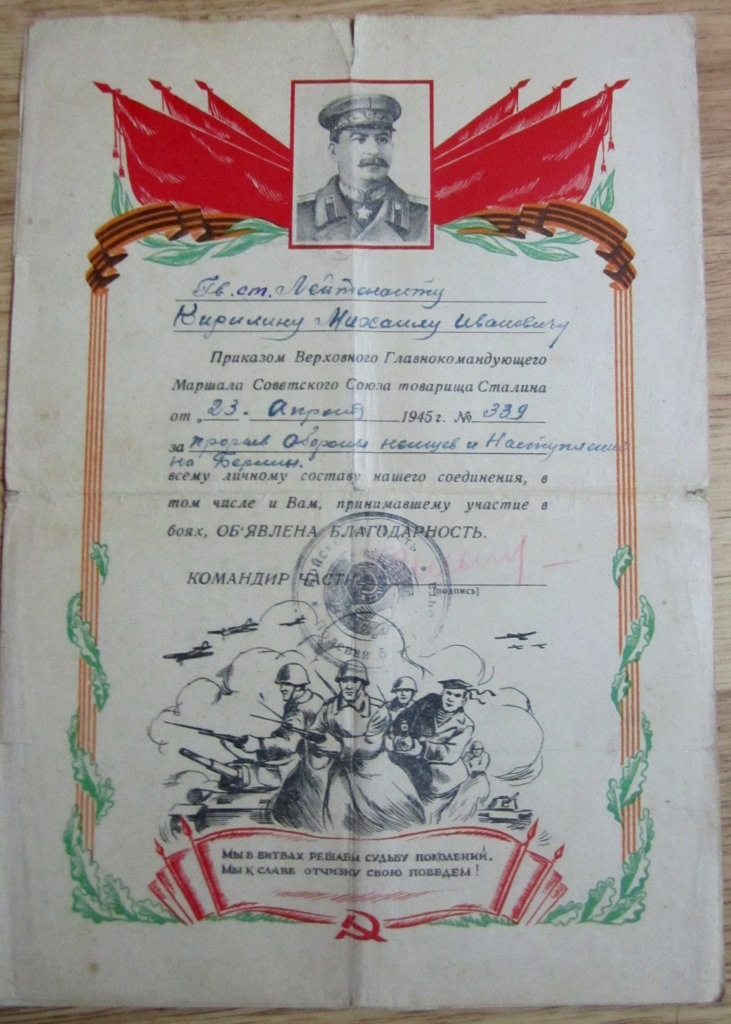 Гв. ст. Лейтенанту
Кирилину Михаилу Ивановичу
Приказом Верховного Главнокомандующего
Маршала Советского Союза товарища Сталина
от „23. Апреля 1945 г. № 339
за прорыв Обороны немцев и Наступление
на Берлин.
всему личному составу нашего соединения, в
том числе и Вам, принимавшему участие в
боях, ОБ'ЯВЛЕНА БЛАГОДАРНОСТЬ.
КОМАНДИР ЧАСТИ
[подпись]
МЫ В БИТВАХ РЕШАЕМ СУДЬБУ ПОКОЛЕНИЙ,
МЫ К СЛАВЕ ОТЧИЗНУ СВОЮ ПОВЕДЕМ!